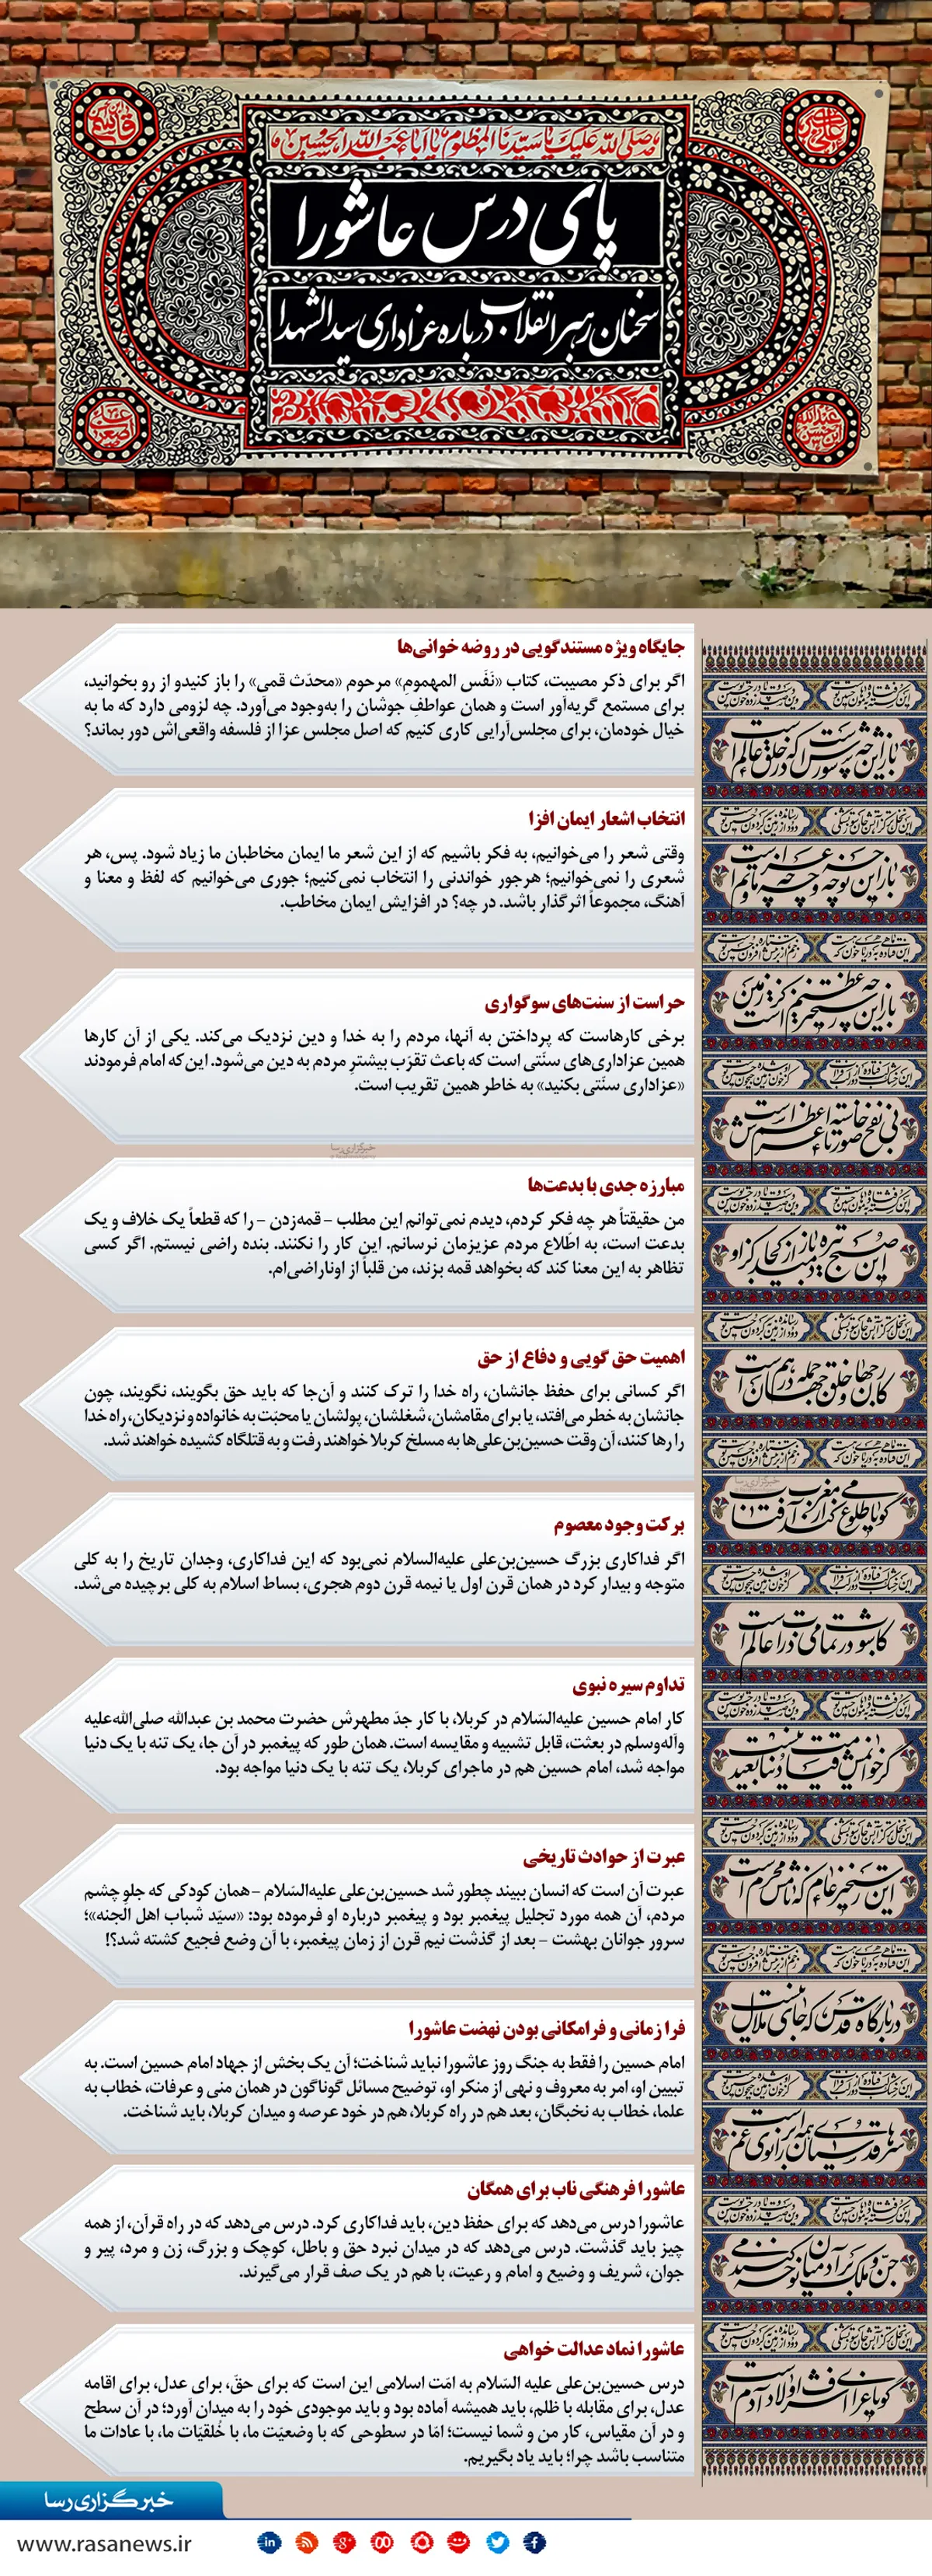 صلی الله علیک یا سیدنا المظلوم یا اباعبدالله الحسین
پای درس عاشورا
سخنان رهبر انقلاب درباره عزاداری سیدالشهدا
جایگاه ویژه مستندگویی در روضه خوانی‌ها
اگر برای ذکر مصیبت، کتاب «نَفَس المهموم» مرحوم «محدّث قمی» را باز کنیدو از رو بخوانید،
برای مستمع گریه‌آور است و همان عواطفِ جوشان را به‌وجود می‌آورد. چه لزومی دارد که ما به
خیال خودمان، برای مجلس‌آرایی کاری کنیم که اصل مجلس عزا از فلسفه واقعی‌اش دور بماند؟
انتخاب اشعار ایمان افزا
وقتی شعر را می‌خوانیم، به فکر باشیم که از این شعر ما ایمان مخاطبان ما زیاد شود. پس، هر
شعری را نمی‌خوانیم؛ هرجور خواندنی را انتخاب نمی‌کنیم؛ جوری می‌خوانیم که لفظ و معنا و
آهنگ، مجموعاً اثرگذار باشد. در چه؟ در افزایش ایمان مخاطب.
حراست از سنت‌های سوگواری
برخی کارهاست که پرداختن به آنها، مردم را به خدا و دین نزدیک می‌کند. یکی از آن کارها
همین عزاداری‌های سنّتی است که باعث تقرّب بیشترِ مردم به دین می‌شود. این‌که امام فرمودند
«عزاداری سنّتی بکنید» به خاطر همین تقریب است.
خبرگزاری رسا
مبارزه جدی با بدعت‌ها
من حقیقتاً هر چه فکر کردم، دیدم نمی‌توانم این مطلب - قمه‌زدن - را که قطعاً یک خلاف و یک
بدعت است، به اطّلاع مردم عزیزمان نرسانم. این کار را نکنند. بنده راضی نیستم. اگر کسی
تظاهر به این معنا کند که بخواهد قمه بزند، من قلباً از اوناراضی‌ام.
اهمیت حق گویی و دفاع از حق
اگر کسانی برای حفظ جانشان، راه خدا را ترک کنند و آن‌جا که باید حق بگویند، نگویند، چون
جانشان به خطر می‌افتد، یا برای مقامشان، شغلشان، پولشان یا محبّت به خانواده و نزدیکان، راه خدا
را رها کنند، آن وقت حسین‌بن‌علی‌ها به مسلخ کربلا خواهند رفت و به قتلگاه کشیده خواهند شد.
برکت وجود معصوم
اگر فداکاری بزرگ حسین‌بن‌علی علیه‌السلام نمی‌بود که این فداکاری، وجدان تاریخ را به کلی
متوجه و بیدار کرد در همان قرن اول یا نیمه قرن دوم هجری، بساط اسلام به کلی برچیده می‌شد.
تداوم سیره نبوی
کار امام حسین علیه‌السّلام در کربلا، با کار جدّ مطهرش حضرت محمد بن عبدالله صلی‌الله‌علیه
وآله‌وسلم در بعثت، قابل تشبیه و مقایسه است. همان طور که پیغمبر در آن جا، یک تنه با یک دنیا
مواجه شد، امام حسین هم در ماجرای کربلا، یک تنه با یک دنیا مواجه بود.
عبرت از حوادث تاریخی
عبرت آن است که انسان ببیند چطور شد حسین‌بن‌علی علیه‌السّلام -همان کودکی که جلوِ چشم
مردم، آن همه مورد تجلیل پیغمبر بود و پیغمبر درباره او فرموده بود: «سیّد شباب اهل الجنه»؛
سرور جوانان بهشت - بعد از گذشت نیم قرن از زمان پیغمبر، با آن وضع فجیع کشته شد؟!
فرا زمانی و فرامکانی بودن نهضت عاشورا
امام حسین را فقط به جنگ روز عاشورا نباید شناخت؛ آن یک بخش از جهاد امام حسین است. به
تبیین او، امر به معروف و نهی از منکر او، توضیح مسائل گوناگون در همان منی و عرفات، خطاب به
علما، خطاب به نخبگان، بعد هم در راه کربلا، هم در خود عرصه و میدان کربلا، باید شناخت.
عاشورا فرهنگی ناب برای همگان
عاشورا درس می‌دهد که برای حفظ دین، باید فداکاری کرد. درس می‌دهد که در راه قرآن، از همه
چیز باید گذشت. درس می‌دهد که در میدان نبرد حق و باطل، کوچک و بزرگ، زن و مرد، پیر و
جوان، شریف و وضیع و امام و رعیت، با هم در یک صف قرار می‌گیرند.
عاشورا نماد عدالت خواهی
درس حسین‌بن‌علی علیه السّلام به امّت اسلامی این است که برای حقّ، برای عدل، برای اقامه
عدل، برای مقابله با ظلم، باید همیشه آماده بود و باید موجودی خود را به میدان آورد؛ در آن سطح
و در آن مقیاس، کار من و شما نیست؛ امّا در سطوحی که با وضعیّت ما، با خُلقیّات ما، با عادات ما
متناسب باشد چرا؛ باید یاد بگیریم.
باز این چه شورش است که در خلق عالم است
باز این چه نوحه و چه عزا و چه ماتم است
باز این چه رستخیز عظیم است کز زمین
بی نفخ صور خاسته تا عرش اعظم است
این صبح تیره باز دمید از کجا کزو
کار جهان و خلق جهان جمله در هم است
گویا طلوع می‌کند از مغرب آفتاب
کاشوب در تمامی ذرات عالم است
گر خوانمش قیامت دنیا بعید نیست
این رستخیز عام که نامش محرم است
در بارگاه قدس که جای ملال نیست
سرهای قدسیان همه بر زانوی غم است
جن و ملک بر آدمیان نوحه می‌کنند
گویا عزای اشرف اولاد آدم است
خبرگزاری رسا
www.rasanews.ir